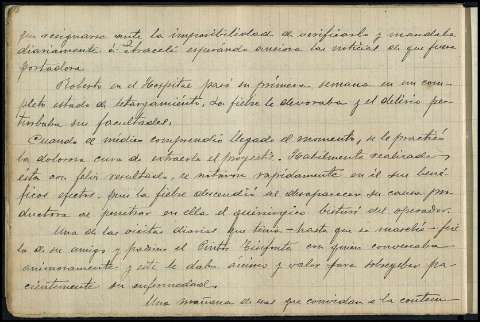 que resignarse ante la imposibilidad de verificarlo y mandaba
diariamente á Itraceli esperando ansiosa las noticias de que fuera
portadora.
Roberto en el Hospital pasó su primera semana en un com-
pleto estado de aletargamiento. La fiebre le devoraba y el delirio per-
turbaba sus facultades.
Cuando el médico comprendió llegado el momento, se le practicó
la dolorosa cura de extraerle el proyectil. Habilmente realizada
ésta con feliz resultado, se notaron rapidamente en él sus bené-
ficos efectos, pues la fiebre descendió al desaparecer su causa pro-
ductora al penetrar en ella el quirúrgico bisturí del operador.
Una de las visitas diarias que tenía - hasta que se marchó - fué
la de su amigo y paisano el Pintor con quien conversaba
animosamente y éste le daba ánimo y valor para sobrellevar pa-
cientemente su enfermedad.
Una mañana de esas que convidan a la contem-